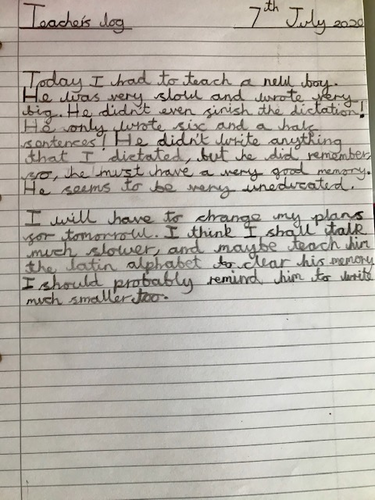 Teacher's log 7th July 2020
Today I had to teach a new boy.
He was very slow and wrote very
big. He didn't even finish the dictation!
He only wrote six and a half
sentences! He didn't write anything
that I dictated, but he did remember
so, he must have a very good memory.
He seems to be very uneducated.
I will have to change my plans
for tomorrow. I think I shall talk
much slower, and maybe teach him
the latin alphabet to clear his memory
I should probably remind him to write
much smaller too.